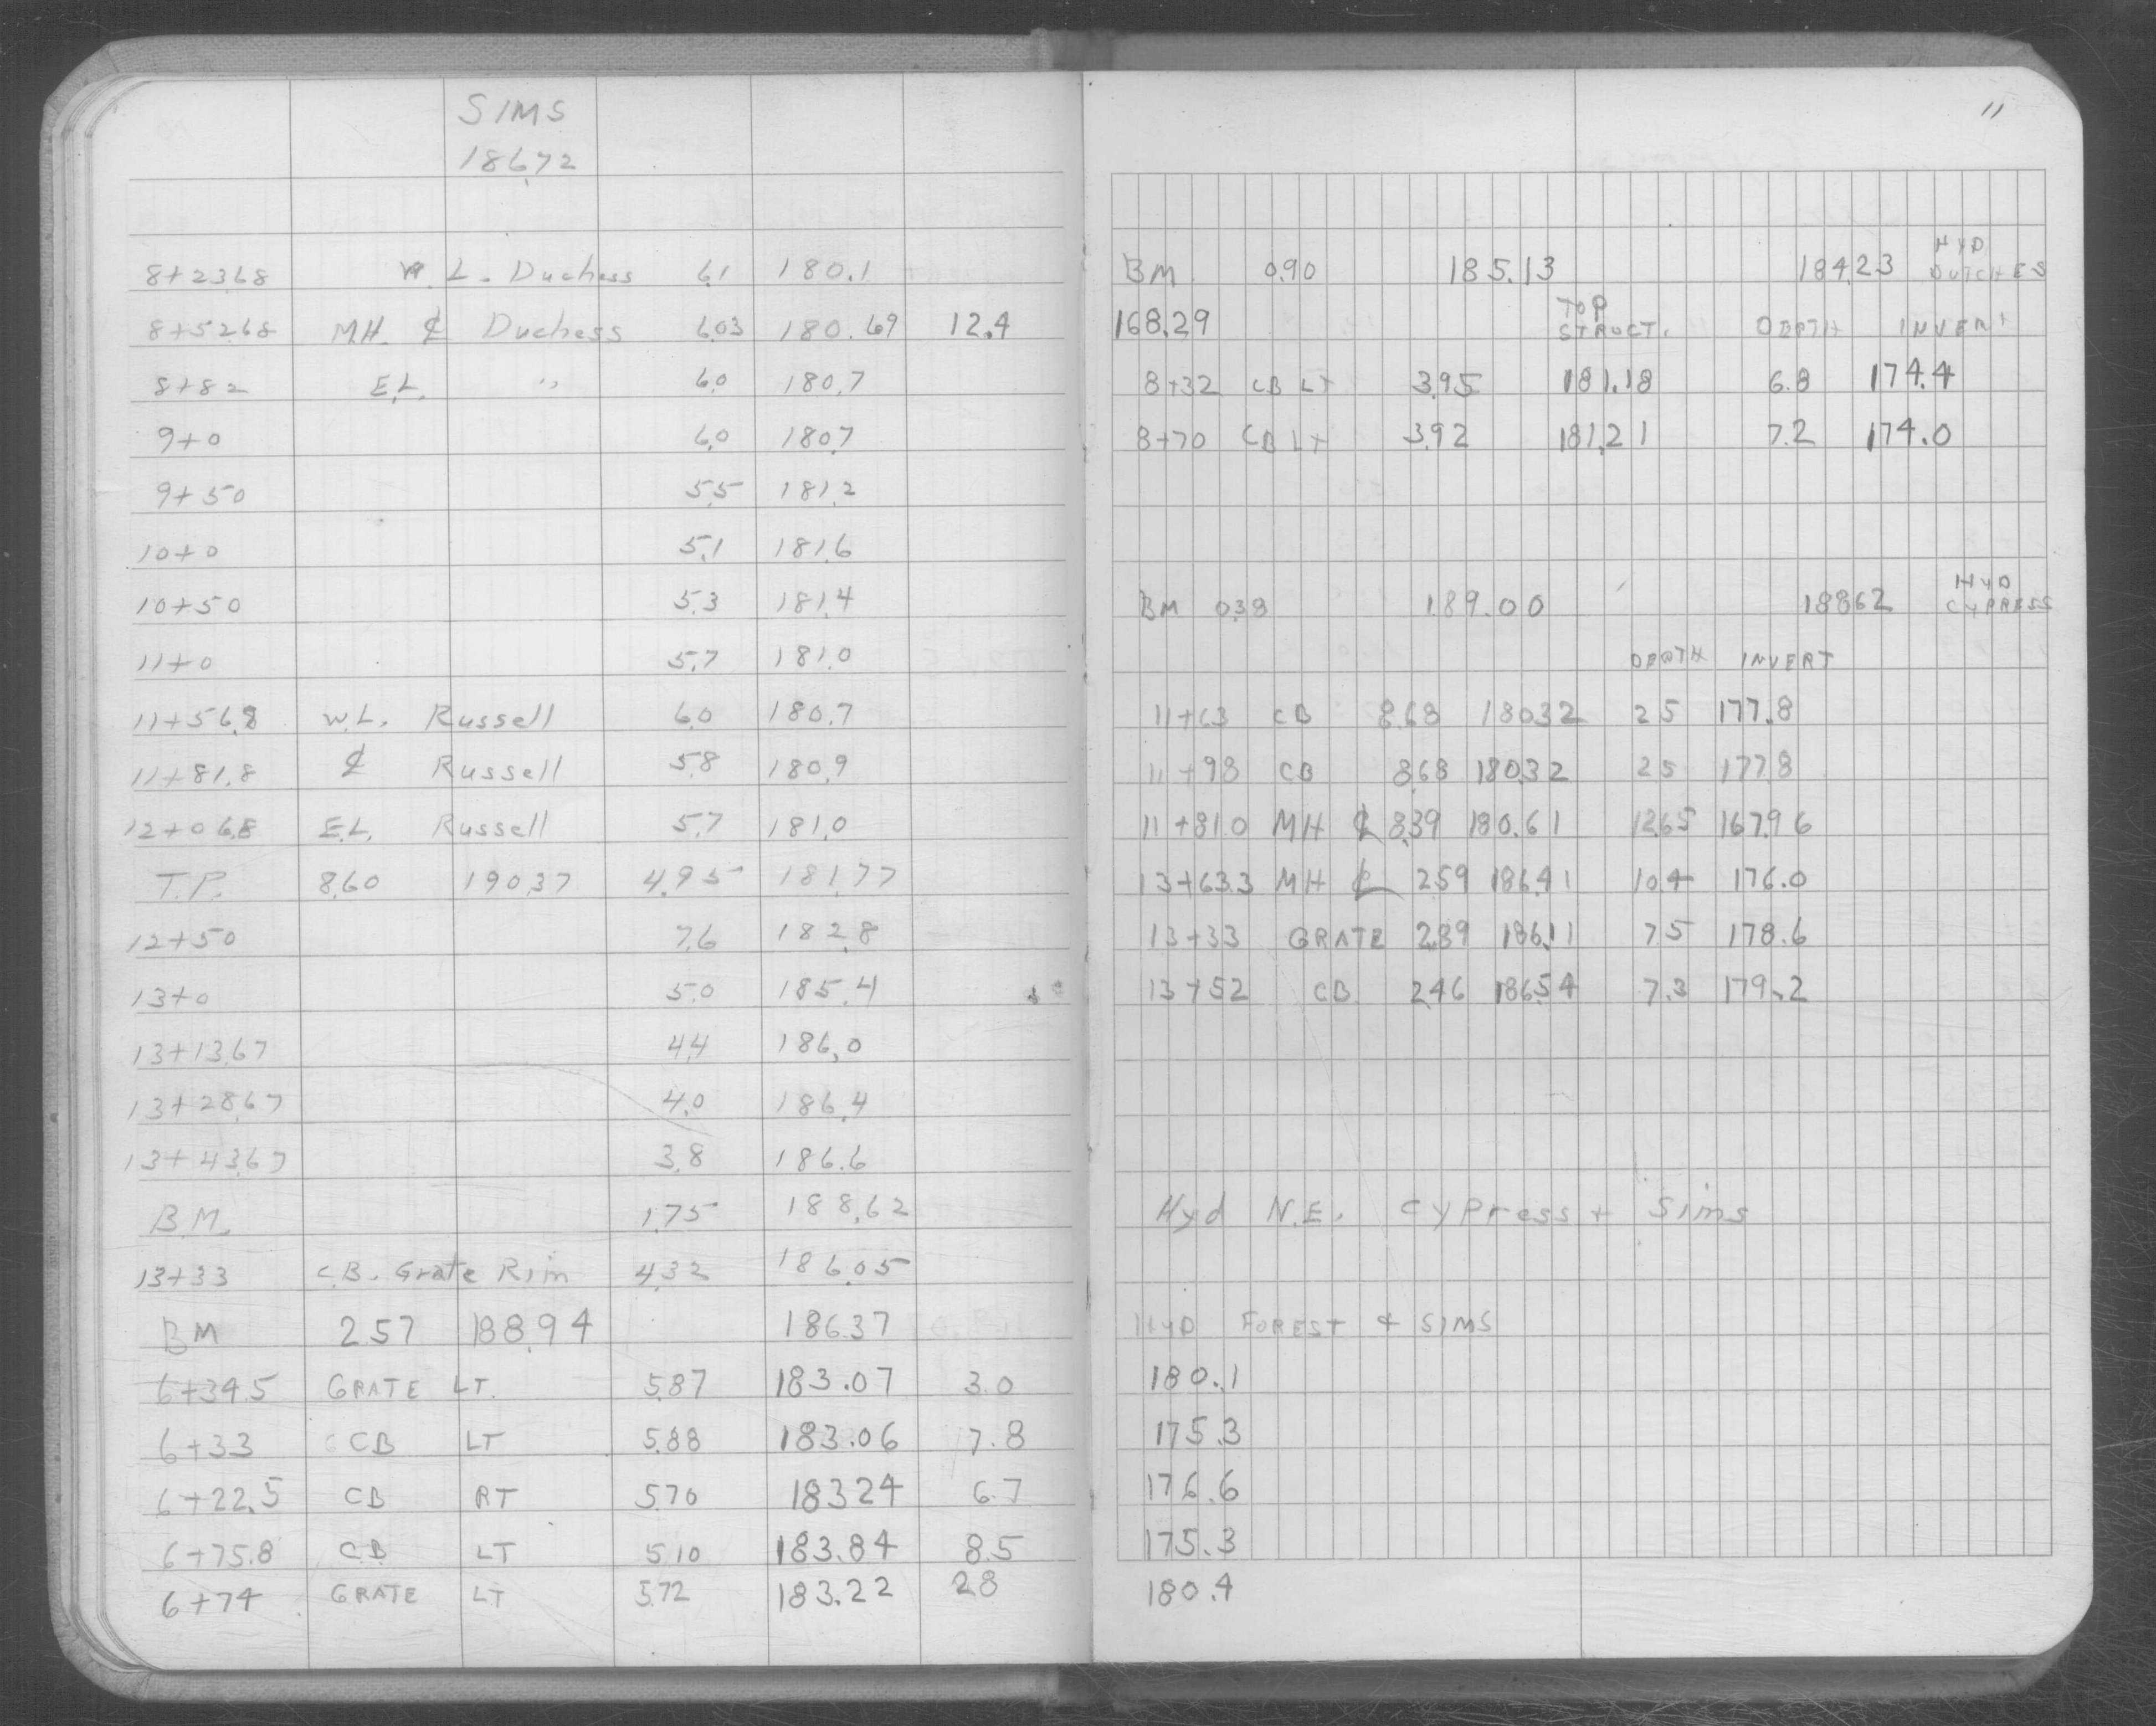 SIMS
186.72
8+23.68 W. L. Duchess 6.1 180.1
8+52.68 M.H. ₵ Duchess 6.03 180.69 12.4
8+82 E.L. " 6.0 180.7
9+0 6.0 180.7
9+50 5.5 181.2
10+0 5.1 181.6
10+50 5.3 181.4
11+0 5.7 181.0
11+56.8 W.L. Russell 6.0 180.7
11+81.8 ₵ Russell 5.8 180.9
12+06.8 E.L. Russell 5.7 181.0
T.P. 8.60 190.37 4.95 181.77
12+50 7.6 182.8
13+0 5.0 185.4
13+13.67 4.4 186.0
13+28.67 4.0 186.4
13+43.67 3.8 186.6
B.M. 1.75 188.62
13+33 C.B. Grate Rim 4.32 186.05
BM 2.57 188.94 186.37
6+34.5 GRATE LT. 5.87 183.07 3.0
6+33 CB LT 5.88 183.06 7.8
6+22.5 CB RT 5.70 183.24 6.7
6+75.8 CB LT 5.10 183.84 8.5
6+74 GRATE LT 5.72 183.22 2.8
11
BM 0.90 185.13 184.23 HYD DUTCHES
168.29 TOP STRUCT. DEPTH INVERT
8+32 CB LT 3.95 181.18 6.8 174.4
8+70 CB LT 3.92 181.21 7.2 174.0
BM 0.38 189.00 188.62 HYD CYPRESS
DEPTH INVERT
11+63 CB 8.68 180.32 2.5 177.8
11+98 CB 8.68 180.32 2.5 177.8
11+81.0 MH ₵ 8.39 180.61 12.65 167.96
13+63.3 MH ₵ 2.59 186.41 10.4 176.0
13+33 GRATE 2.89 186.11 7.5 178.6
13+52 CB 2.46 186.54 7.3 179.2
Hyd N.E. Cypress + Sims
HYD FOREST & SIMS
180.1
175.3
176.6
175.3
180.4